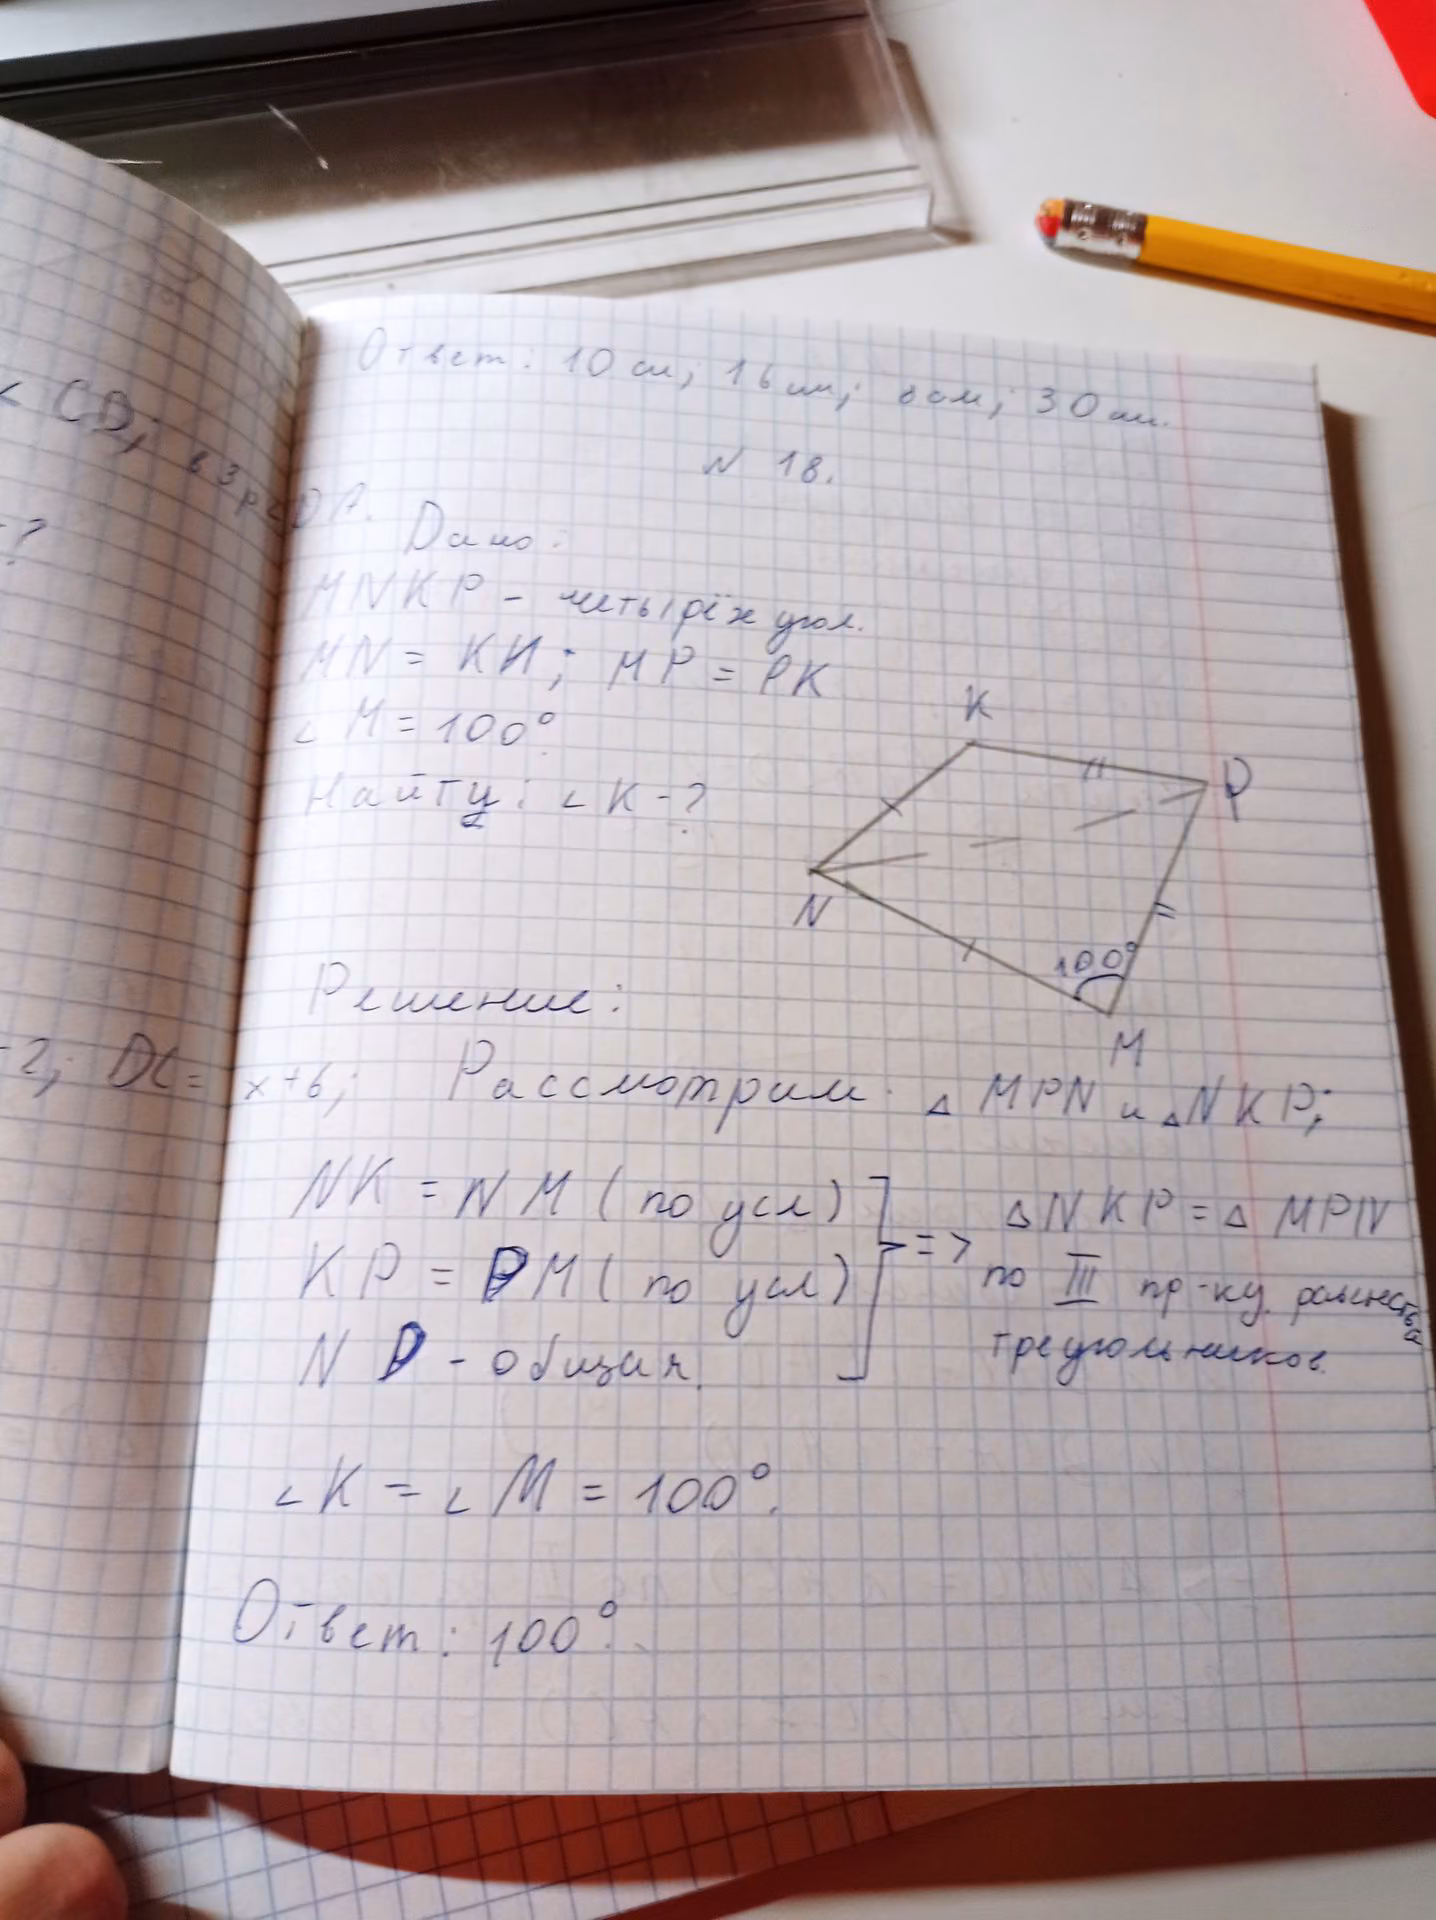 < CD; в 3 р < DA.
-?
-2; DC = x+6;
Ответ: 10 см; 16 см; 8 см; 30 см.
N 18.
Дано:
MNKP - четырёхугол.
MN = KN; MP = PK
∠M = 100°.
Найти: ∠K-?
K
P
N
100°
M
Решение:
Рассмотрим △MPN и △NKP;
NK = NM (по усл)
KP = PM (по усл)
NP - общая.
=> △NKP = △MPN
по III пр-ку равенства
треугольников.
∠K = ∠M = 100°.
Ответ: 100°.